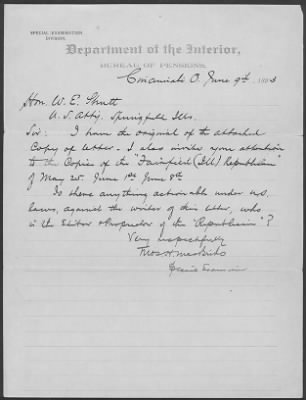 SPECIAL EXAMINATION
DIVISION.
Department of the Interior,
BUREAU OF PENSIONS,
Cincinnati O. June 9th, 1893
Hon. W. E. Shutt
U. S. Atty. Springfield Ills.
Sir: I have the original of the attached
Copy of letter. I also invite your attention
to the Copies of the "Fairfield (Ill) Republican"
of May 25. June 1st June 8th
Is there anything actionable under U.S.
laws, against the writer of this letter, who
is the Editor & Proprietor of the "Republican"?
Very respectfully
Thos. H.
Special Examiner